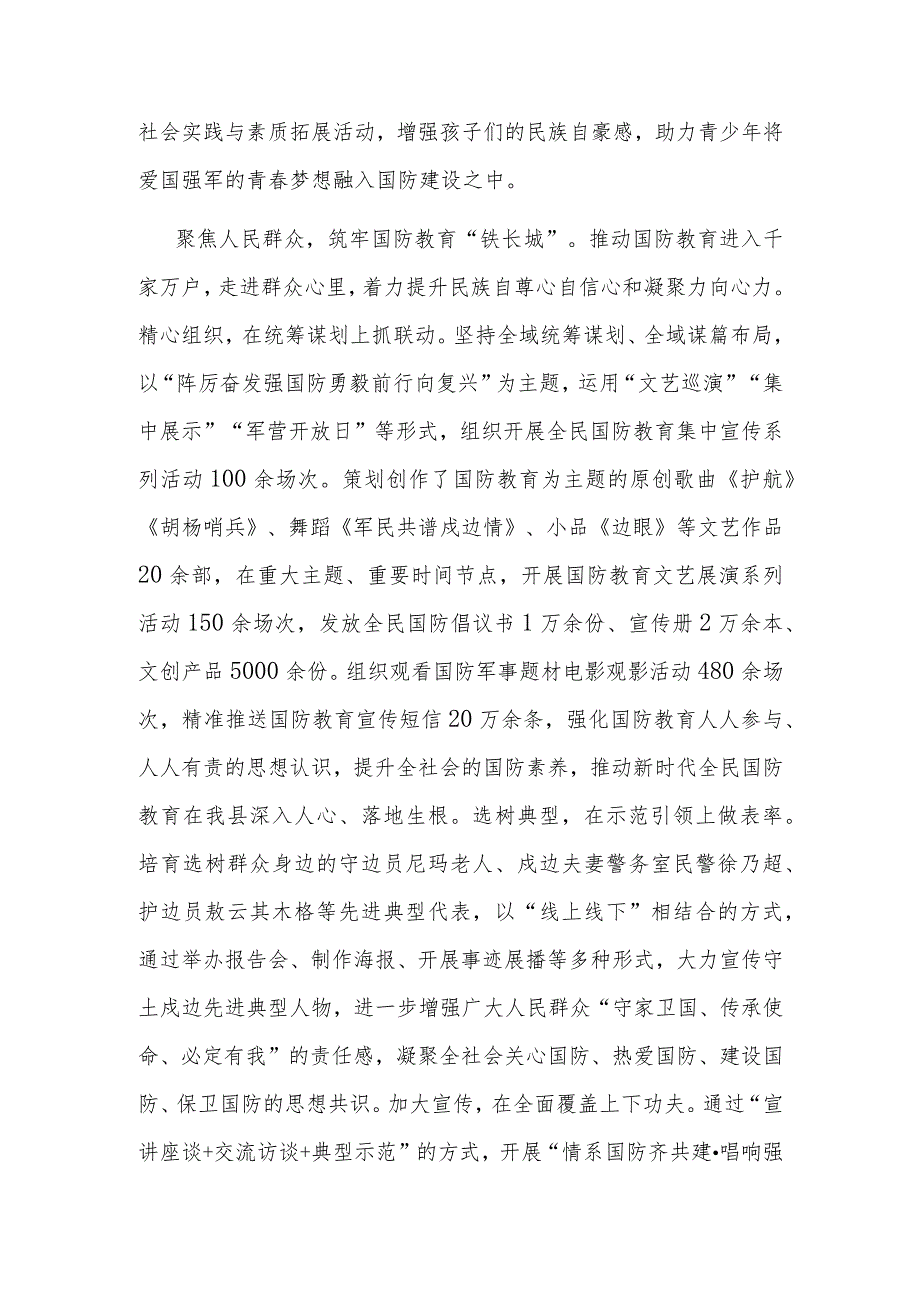 社会实践与素质拓展活动，增强孩子们的民族自豪感，助力青少年将
爱国强军的青春梦想融入国防建设之中。
聚焦人民群众，筑牢国防教育“铁长城”。推动国防教育进入千
家万户，走进群众心里，着力提升民族自尊心自信心和凝聚力向心力。
精心组织，在统筹谋划上抓联动。坚持全域统筹谋划、全域谋篇布局，
以“阵厉奋发强国防勇毅前行向复兴”为主题，运用“文艺巡演”“集
中展示”“军营开放日”等形式，组织开展全民国防教育集中宣传系
列活动100余场次。策划创作了国防教育为主题的原创歌曲《护航》
《胡杨哨兵》、舞蹈《军民共谱戍边情》、小品《边眼》等文艺作品
20余部，在重大主题、重要时间节点，开展国防教育文艺展演系列
活动150余场次，发放全民国防倡议书1万余份、宣传册2万余本、
文创产品5000余份。组织观看国防军事题材电影观影活动480余场
次，精准推送国防教育宣传短信20万余条，强化国防教育人人参与、
人人有责的思想认识，提升全社会的国防素养，推动新时代全民国防
教育在我县深入人心、落地生根。选树典型，在示范引领上做表率。
培育选树群众身边的守边员尼玛老人、戍边夫妻警务室民警徐乃超、
护边员敖云其木格等先进典型代表，以“线上线下”相结合的方式，
通过举办报告会、制作海报、开展事迹展播等多种形式，大力宣传守
土戍边先进典型人物，进一步增强广大人民群众“守家卫国、传承使
命、必定有我”的责任感，凝聚全社会关心国防、热爱国防、建设国
防、保卫国防的思想共识。加大宣传，在全面覆盖上下功夫。通过“宣
讲座谈+交流访谈+典型示范”的方式，开展“情系国防齐共建•唱响强